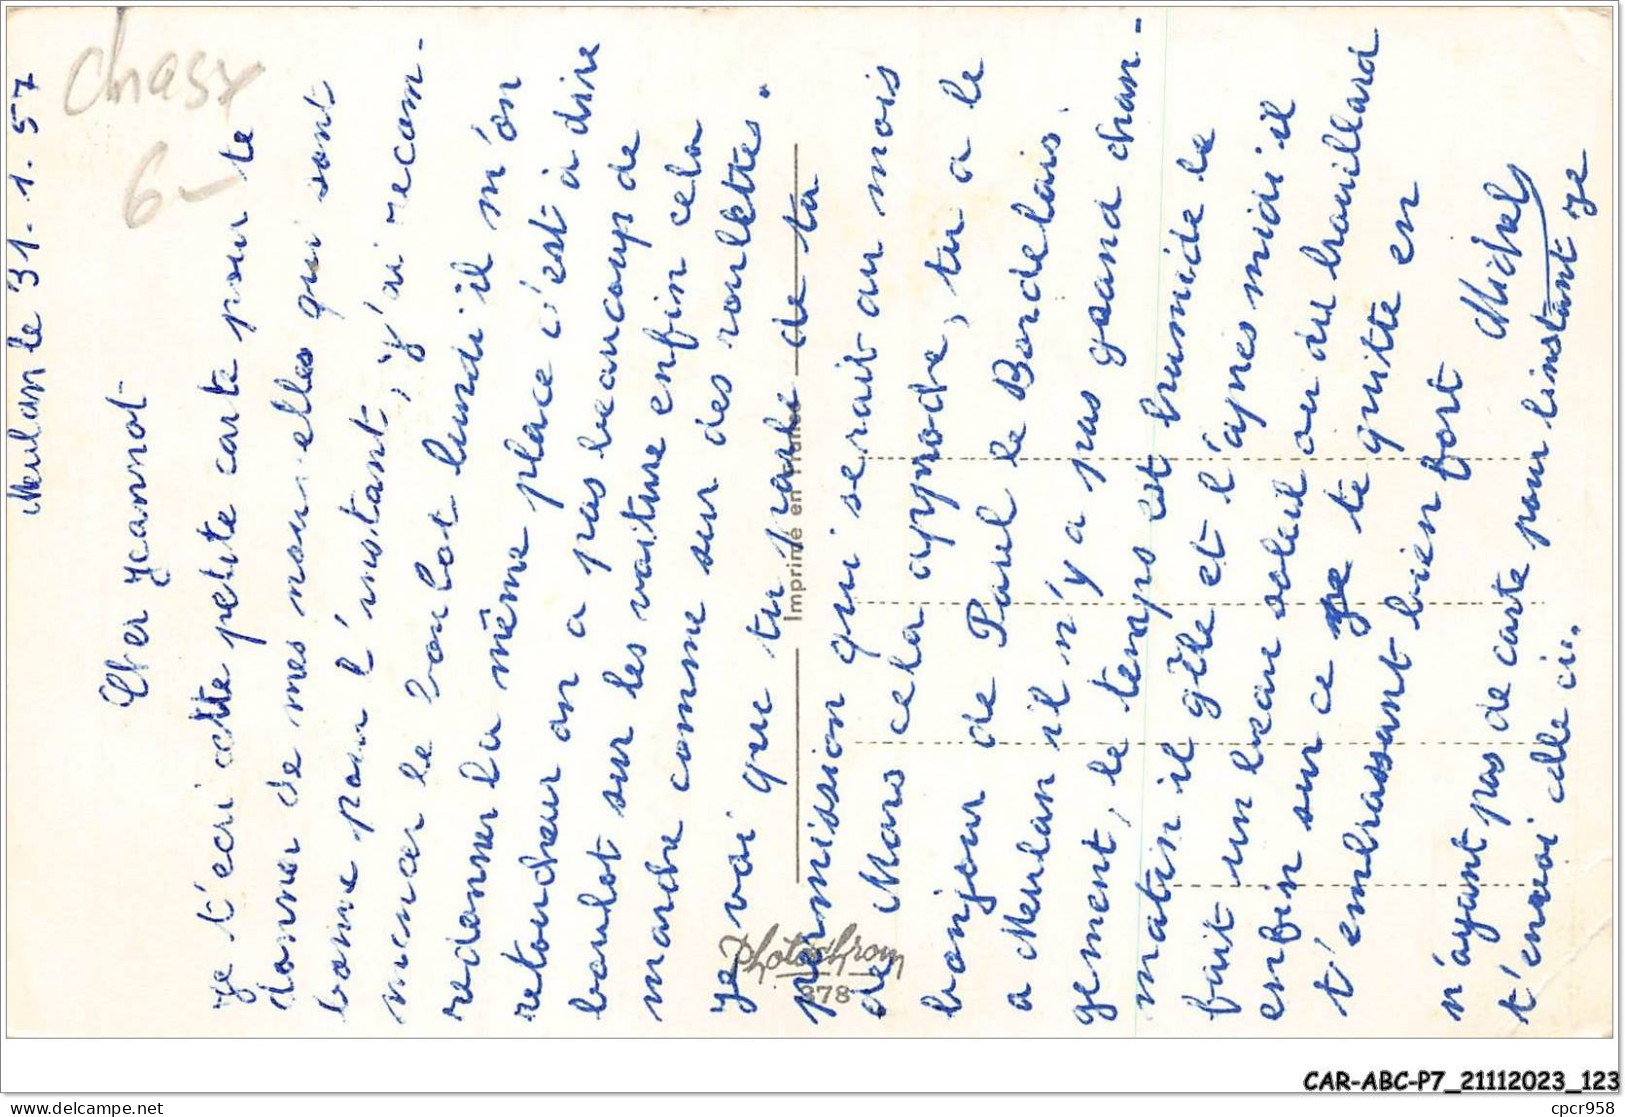 Meulan le 31.1.57
Cher Jeannot
je t'ecri cette petite carte pour te
donner de mes nouvelles qui sont
bonne pour l'instant, j'ai recom-
mencer le boulot lundi il m'on
redonner la même place c'est à dire
retoucheur on a pas beaucoup de
boulot sur les voiture enfin cela
marche comme sur des roulettes.
je voi que tu parle de ta
permission qui serait au mois
de Mars cela approche, tu a le
bonjour de Paul le Bordelais.
a Meulan il n'y a pas grand chan-
gement, le temps est humide le
matin il gèle et l'apres midi il
fait un beau soleil ou du brouillard
enfin sur ce je te quitte en
t'embrassant bien fort
Michel
n'ayant pas de carte pour l'instant je
t'envoi celle ci.
chasx
6-
Imprimé en France
Photochrom
878
CAR-ABC-P7_21112023_123
cpcr958